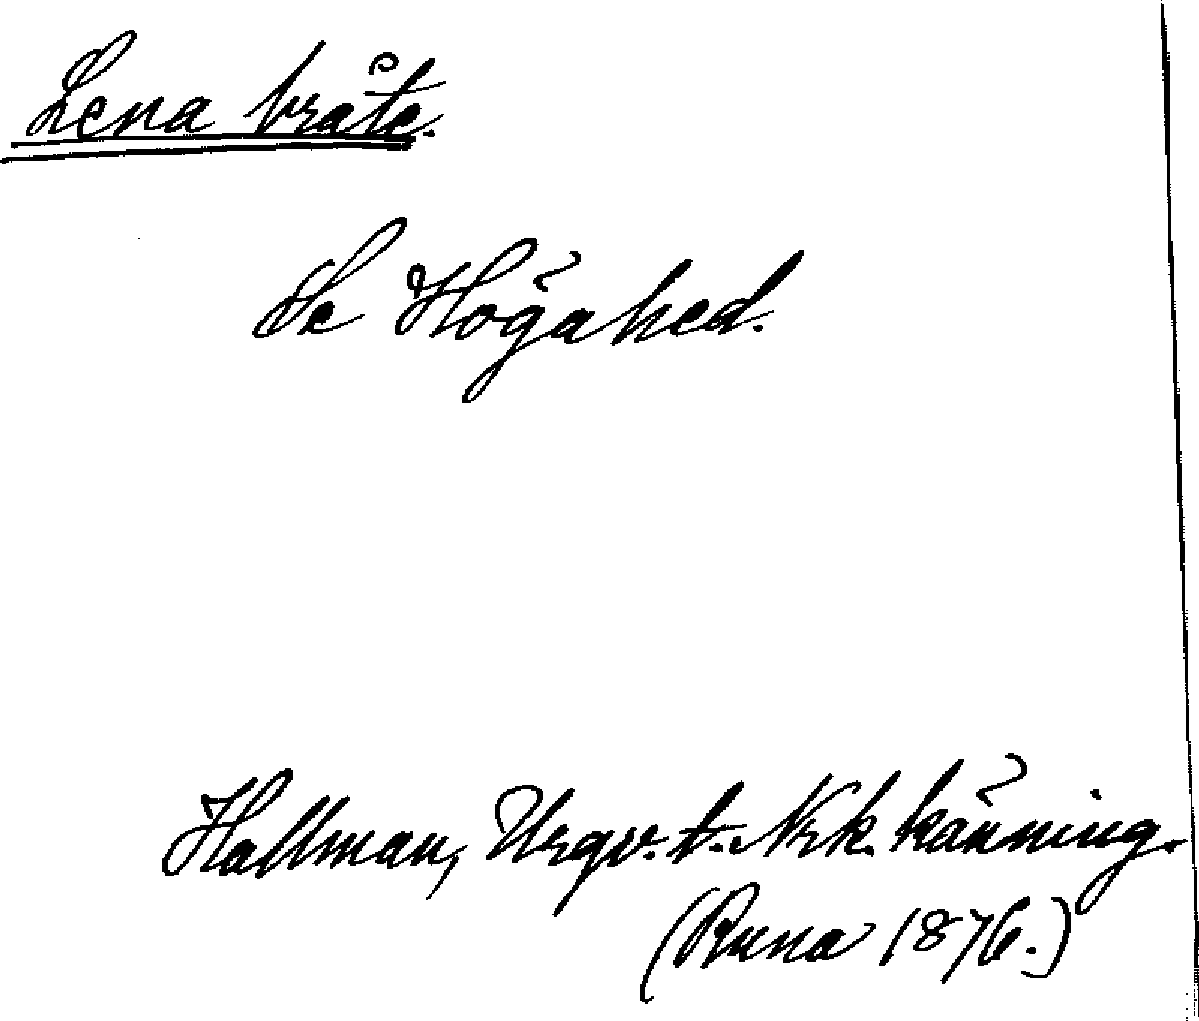 Lena bråte.
Se Högahed.
Hallman, Urgv. t. Nrk. känning.
(Runa 1876.)